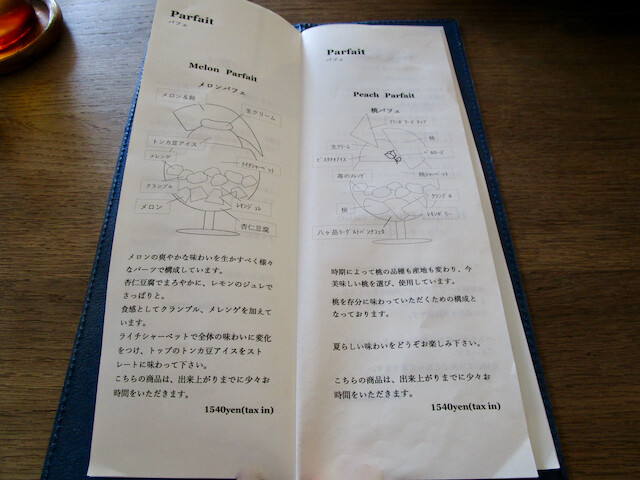 Parfait
パフェ
Melon Parfait
メロンパフェ
生クリーム
トンカ豆アイス
メレンゲ
ライチシャーベット
クランブル
メロン
レモンジュレ
杏仁豆腐
メロンの爽やかな味わいを生かすべく様々
なパーツで構成しています。
杏仁豆腐でまろやかに、レモンのジュレで
さっぱりと。
食感としてクランブル、メレンゲを加えて
います。
ライチシャーベットで全体の味わいに変化
をつけ、トップのトンカ豆アイスをスト
レートに味わって下さい。
こちらの商品は、出来上がりまでに少々お
時間をいただきます。
1540yen(tax in)
Parfait
パフェ
Peach Parfait
桃パフェ
桃
生クリーム
ピスタチオアイス
桃シャーベット
クランブル
桃
時期によって桃の品種も産地も変わり、今
美味しい桃を選び、使用しています。
桃を存分に味わっていただくための構成と
なっております。
夏らしい味わいをどうぞお楽しみ下さい。
こちらの商品は、出来上がりまでに少々お
時間をいただきます。
1540yen(tax in)